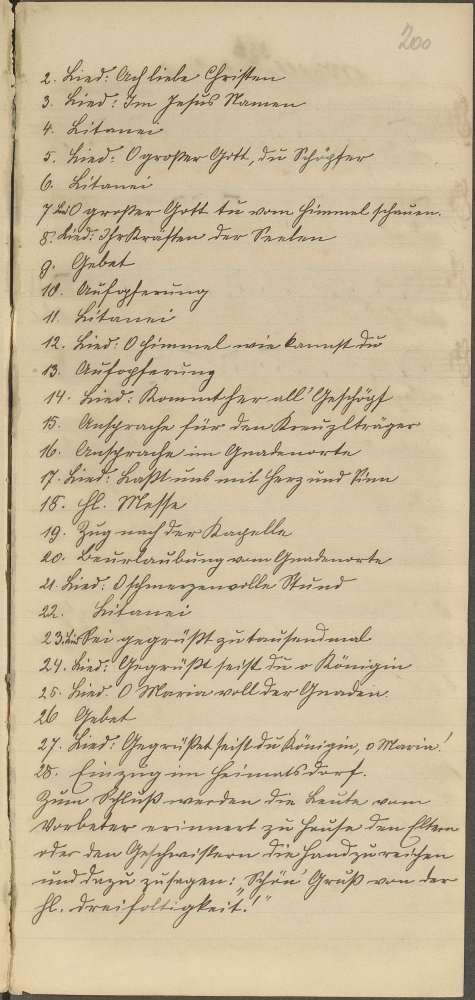 200
2. Lied: Ach liebe Christen
3. Lied: Im Jesus Namen
4. Litanei
5. Lied: O großer Gott, du Schöpfer
6. Litanei
7 Lied O großer Gott tu vom Himmel schauen.
8. Lied: Ihr Kräften der Seelen
9. Gebet
10. Aufopferung
11. Litanei
12. Lied: O Himmel wie kannst du
13. Aufopferung
14. Lied: Kommt her all' Geschöpf
15. Ansprache für den Kreuzlträger
16. Ansprache im Gnadenorte
17. Lied: Laßt uns mit Herz und Sinn
18. hl. Messe
19. Zug nach der Kapelle
20. Beurlaubung vom Gnadenorte
21. Lied: O schmerzenvolle Stund
22. Litanei
23. Lied Sei gegrüßt zu tausendmal
24. Lied: Gegrüßt seist du o Königin
25. Lied. O Maria voll der Gnaden.
26 Gebet
27. Lied: Gegrüßet seist du Königin, o Maria!
28. Einzug im Heimatsdorf.
Zum Schluß werden die Leute vom
Vorbeter erinnert zu Hause den Eltern
oder den Geschwistern die Hand zu reichen
und dazu zusagen: „Schön' Gruß von der
hl. Dreifoltigkeit!"